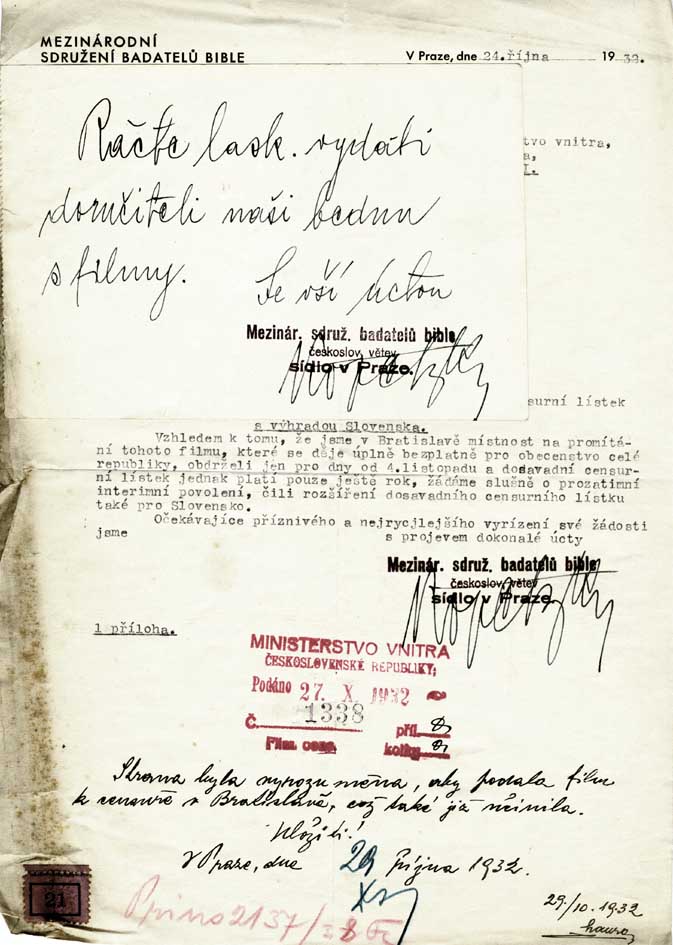 MEZINÁRODNÍ
SDRUŽENÍ BADATELŮ BIBLE
V Praze, dne 24.října 1932.
Račte lask. vydati
doručiteli naši bednu
s filmy. Se vší úctou
Mezinár. sdruž. badatelů bible
českoslov. větev
sídlo v Praze.
tvo vnitra,
a,
I.
surní lístek
s výhradou Slovenska.
Vzhledem k tomu, že jsme v Bratislavě místnost na promítá-
ní tohoto filmu, které se děje úplně bezplatně pro obecenstvo celé
republiky, obdrželi jen pro dny od 4.listopadu a dosavadní censur-
ní lístek jednak platí pouze ještě rok, žádáme slušně o prozatimní
interimní povolení, čili rozšíření dosavadního censurního lístku
také pro Slovensko.
Očekávajíce příznivého a nejrycjlejšího vyřízení své žádosti
jsme s projevem dokonalé úcty
Mezinár. sdruž. badatelů bible
českoslov. větev
sídlo v Praze.
1 příloha.
MINISTERSTVO VNITRA
ČESKOSLOVENSKÉ REPUBLIKY;
Podáno 27. X. 1932
Č. 1338 příl.
Film. cens. kolky
Strana byla vyrozuměna, aby podala film
k censuře v Bratislavě, což také již učinila.
Uložiti!
V Praze, dne 29 října 1932.
29./10.1932
21